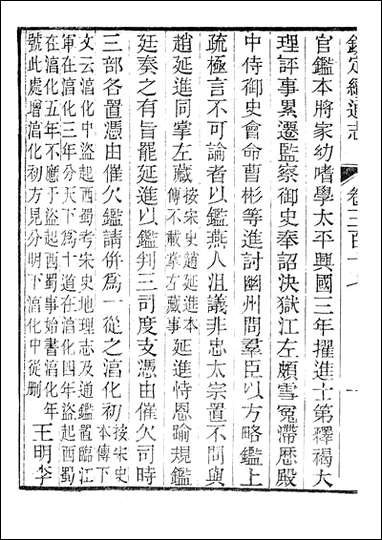 欽定續通志　卷三百十七
官鑑本將家幼嗜學太平興國三年擢進士第釋褐大
理評事累遷監察御史奉詔決獄江左頗雪冤滯歷殿
中侍御史會命曹彬等進討幽州問羣臣以方略鑑上
疏極言不可論者以鑑燕人沮議非忠太宗置不問與
趙延進同掌左藏按宋史趙延進本傳不載掌左藏事延進恃恩踰規鑑
廷奏之有旨罷延進以鑑判三司度支憑由催欠司時
三部各置憑由催欠鑑請併爲一從之淄化初按宋史本傳下
文云淄化中盜起西蜀考宋史地理志及通鑑置臨江軍在淄化三年分天下爲十道在淄化四年盜起西蜀
在淄化五年不應于盜起西蜀事始書淄化年號此處增淄化初方見分明下淄化中從刪王明李